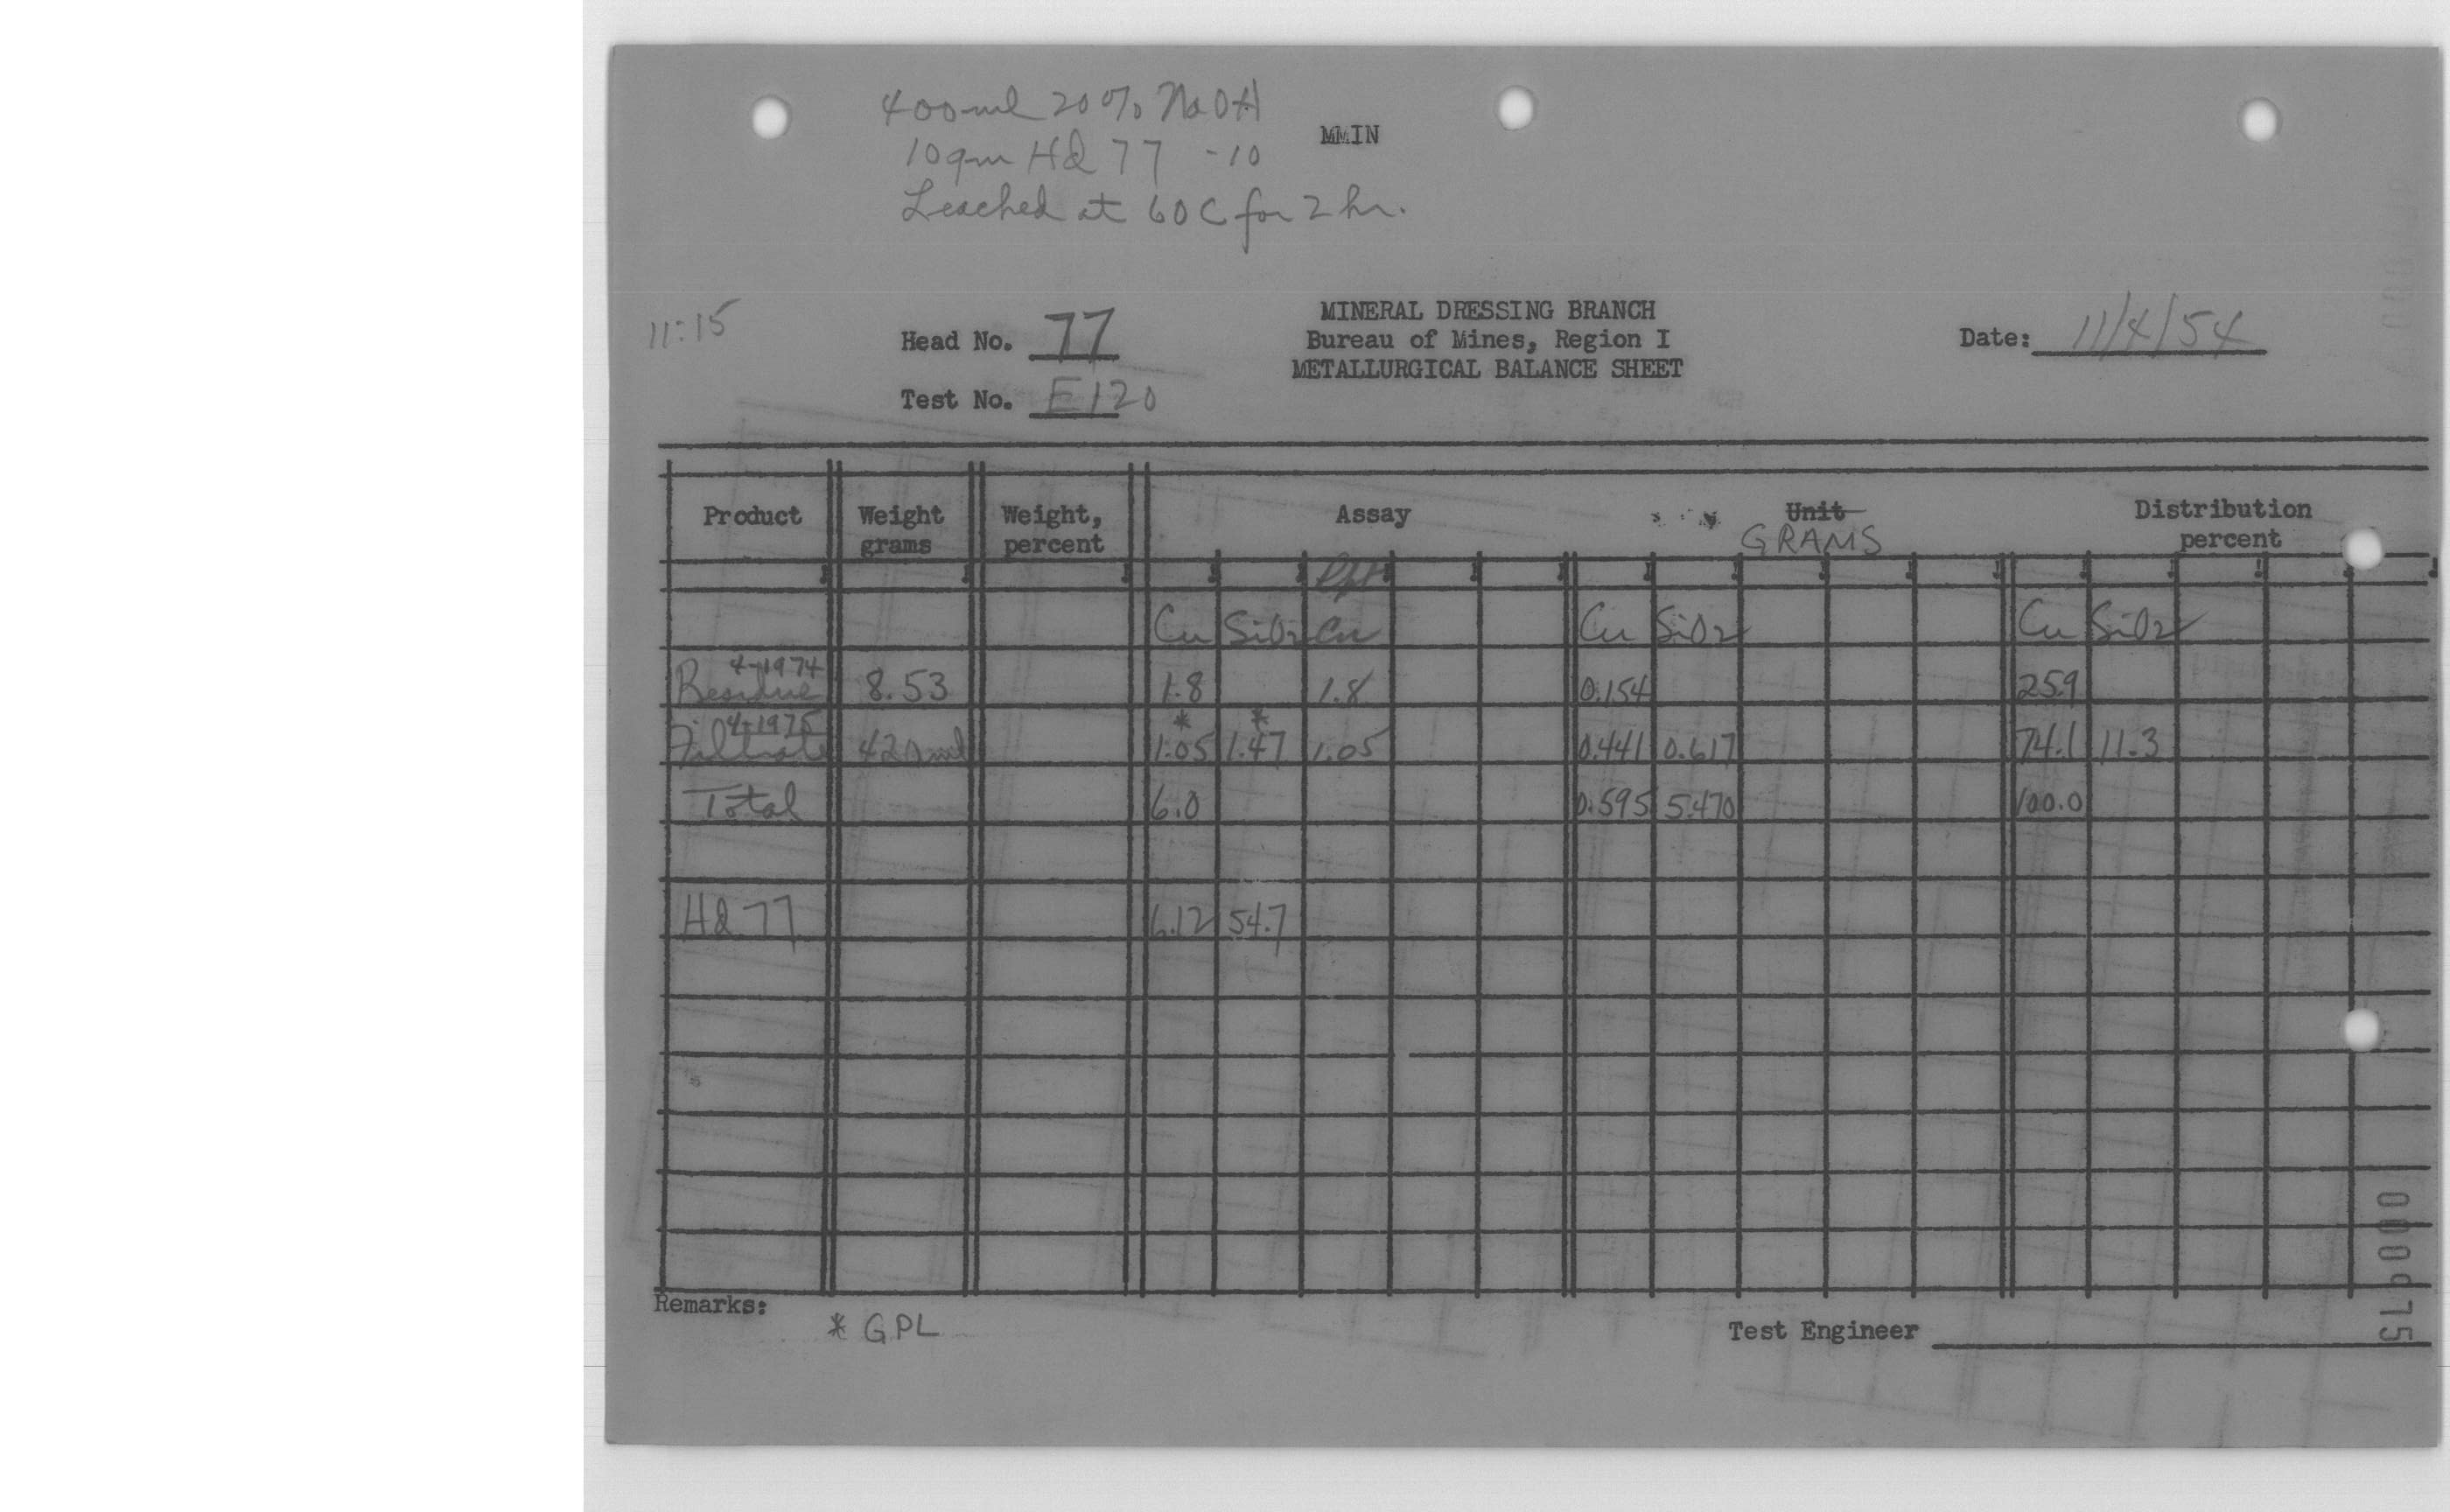 400 ml 20% NaOH
MMIN
10 gm Hd 77 -10
Leached at 60 C for 2 hr.
11:15
Head No. 77
Test No. E120
MINERAL DRESSING BRANCH
Bureau of Mines, Region I
METALLURGICAL BALANCE SHEET
Date: 11/4/54
Product Weight grams Weight, percent Assay Unit GRAMS Distribution percent
Cu SiO2 Cu Cu SiO2 Cu SiO2
4-1974
Residue 8.53 1.8 1.8 0.154 25.9
4-1975 * *
Filtrate 420 ml 1.05 1.47 1.05 0.441 0.617 74.1 11.3
Total 6.0 0.595 5.470 100.0
Hd 77 6.12 54.7
Remarks:
* GPL
Test Engineer